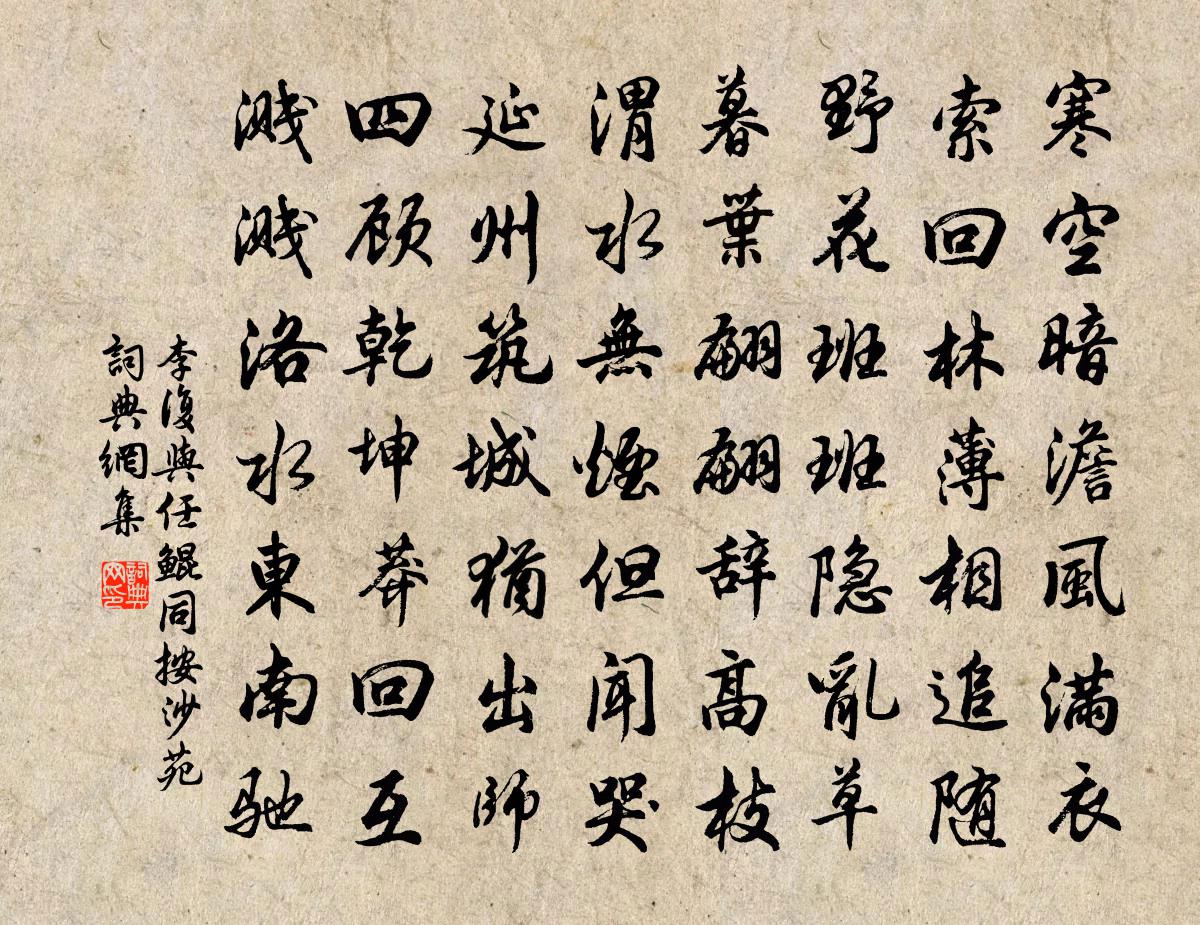 寒空暗澹風滿衣
索回林薄相追随
野花班班隐亂草
暮葉翩翩辞高枝
渭水無煙但聞哭
延州筑城猶出師
四顾乾坤莽回互
濺濺洛水東南驰
李復與任鯤同按沙苑
詞典網集
詞典网